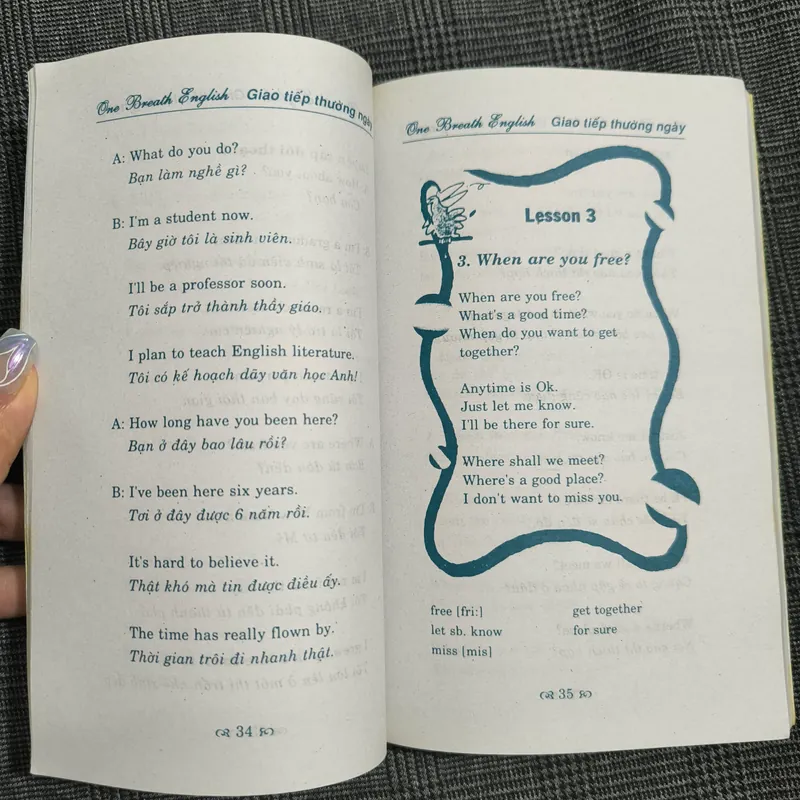 One Breath English Giao tiếp thường ngày
A: What do you do?
Bạn làm nghề gì?
B: I'm a student now.
Bây giờ tôi là sinh viên.
I'll be a professor soon.
Tôi sắp trở thành thầy giáo.
I plan to teach English literature.
Tôi có kế hoạch dãy văn học Anh!
A: How long have you been here?
Bạn ở đây bao lâu rồi?
B: I've been here six years.
Tơi ở đây được 6 năm rồi.
It's hard to believe it.
Thật khó mà tin được điều ấy.
The time has really flown by.
Thời gian trôi đi nhanh thật.
34
One Breath English Giao tiếp thường ngày
Lesson 3
3. When are you free?
When are you free?
What's a good time?
When do you want to get
together?
Anytime is Ok.
Just let me know.
I'll be there for sure.
Where shall we meet?
Where's a good place?
I don't want to miss you.
free [fri:] get together
let sb. know for sure
miss [mis]
35